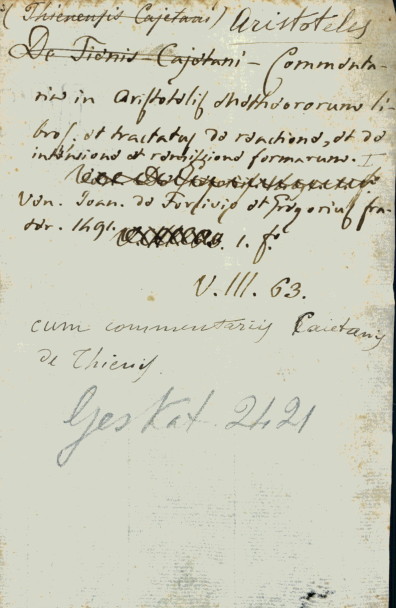 (Thienensis Cajetani) Aristoteles
De Tienis Cajetani - Commenta-
ria in Aristotelis Metheororum li-
bros. et tractatus de reactione, et de
intensione et remissione formarum. I
Ven. Joan. de Forlivio et Gregorius fra-
ter. 1491. 1. f.
V. III. 63.
cum commentariis Caietani
de Thienis.
Ges Kat. 2421